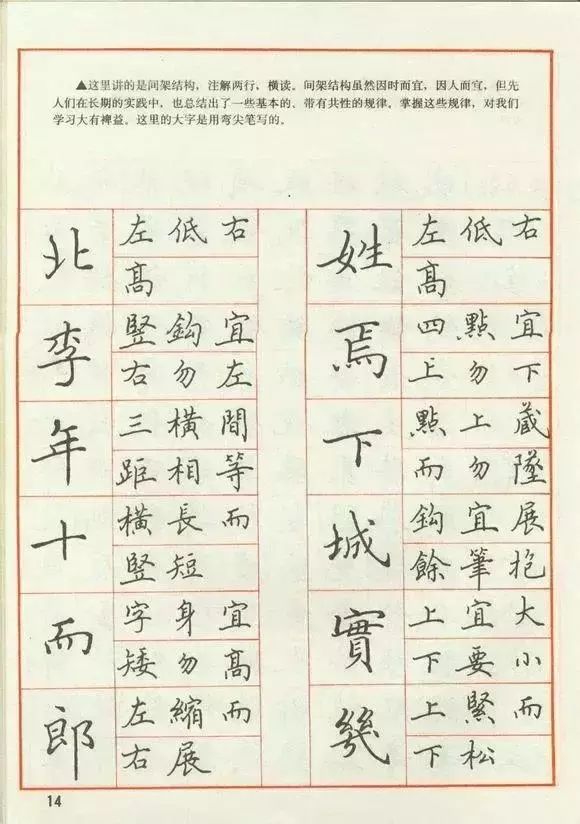 ▲这里讲的是间架结构，注解两行，横读。间架结构虽然因时而宜，因人而宜，但先
人们在长期的实践中，也总结出了一些基本的、带有共性的规律。掌握这些规律，对我们
学习大有裨益。这里的大字是用弯尖笔写的。
北
左低右
高
李
竪鈎宜
右勿左
年
三橫間
距相等
十
橫長而
竪短
而
字身宜
矮勿高
郎
左縮而
右展
姓
左低右
高
焉
四點宜
上勿下
下
點上藏
而勿墜
城
鈎宜展
餘筆抱
實
上宜大
下要小
幾
上緊而
下松
14